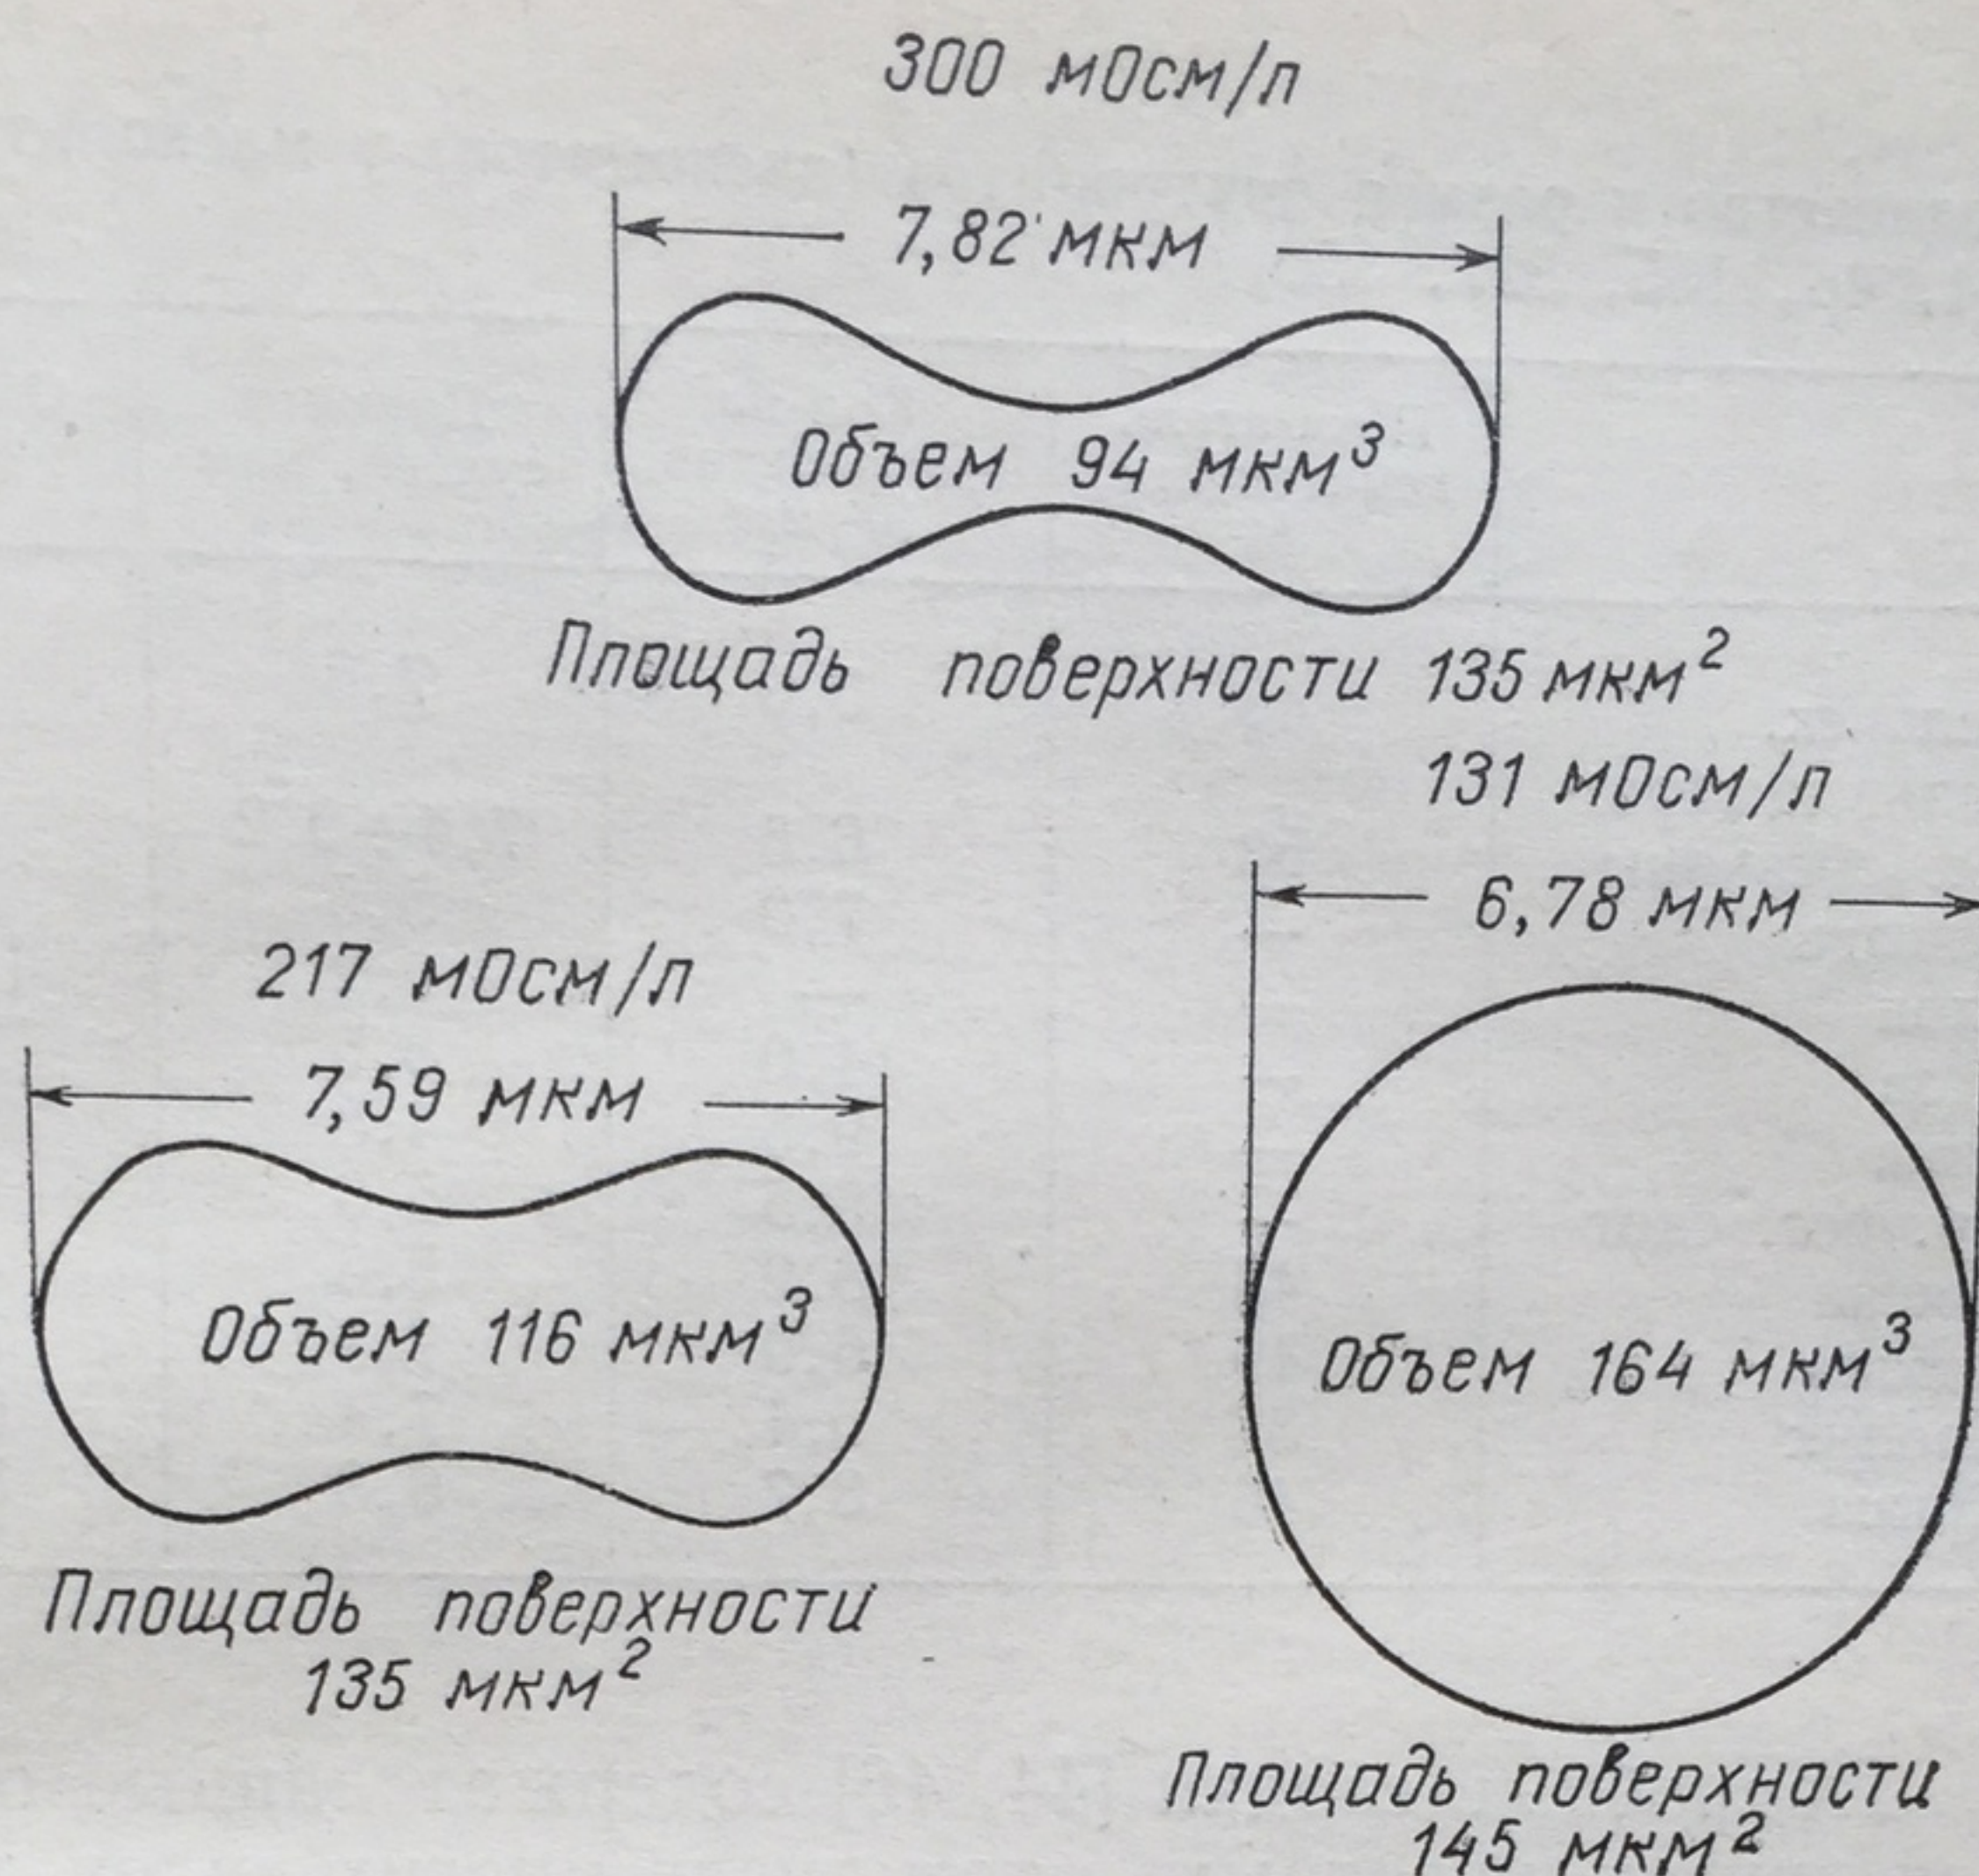 300 мОсм/л
7,82 мкм
Объем 94 мкм³
Площадь поверхности 135 мкм²
131 мОсм/л
6,78 мкм
217 мОсм/л
7,59 мкм
Объем 116 мкм³
Объем 164 мкм³
Площадь поверхности
135 мкм²
Площадь поверхности
145 мкм²